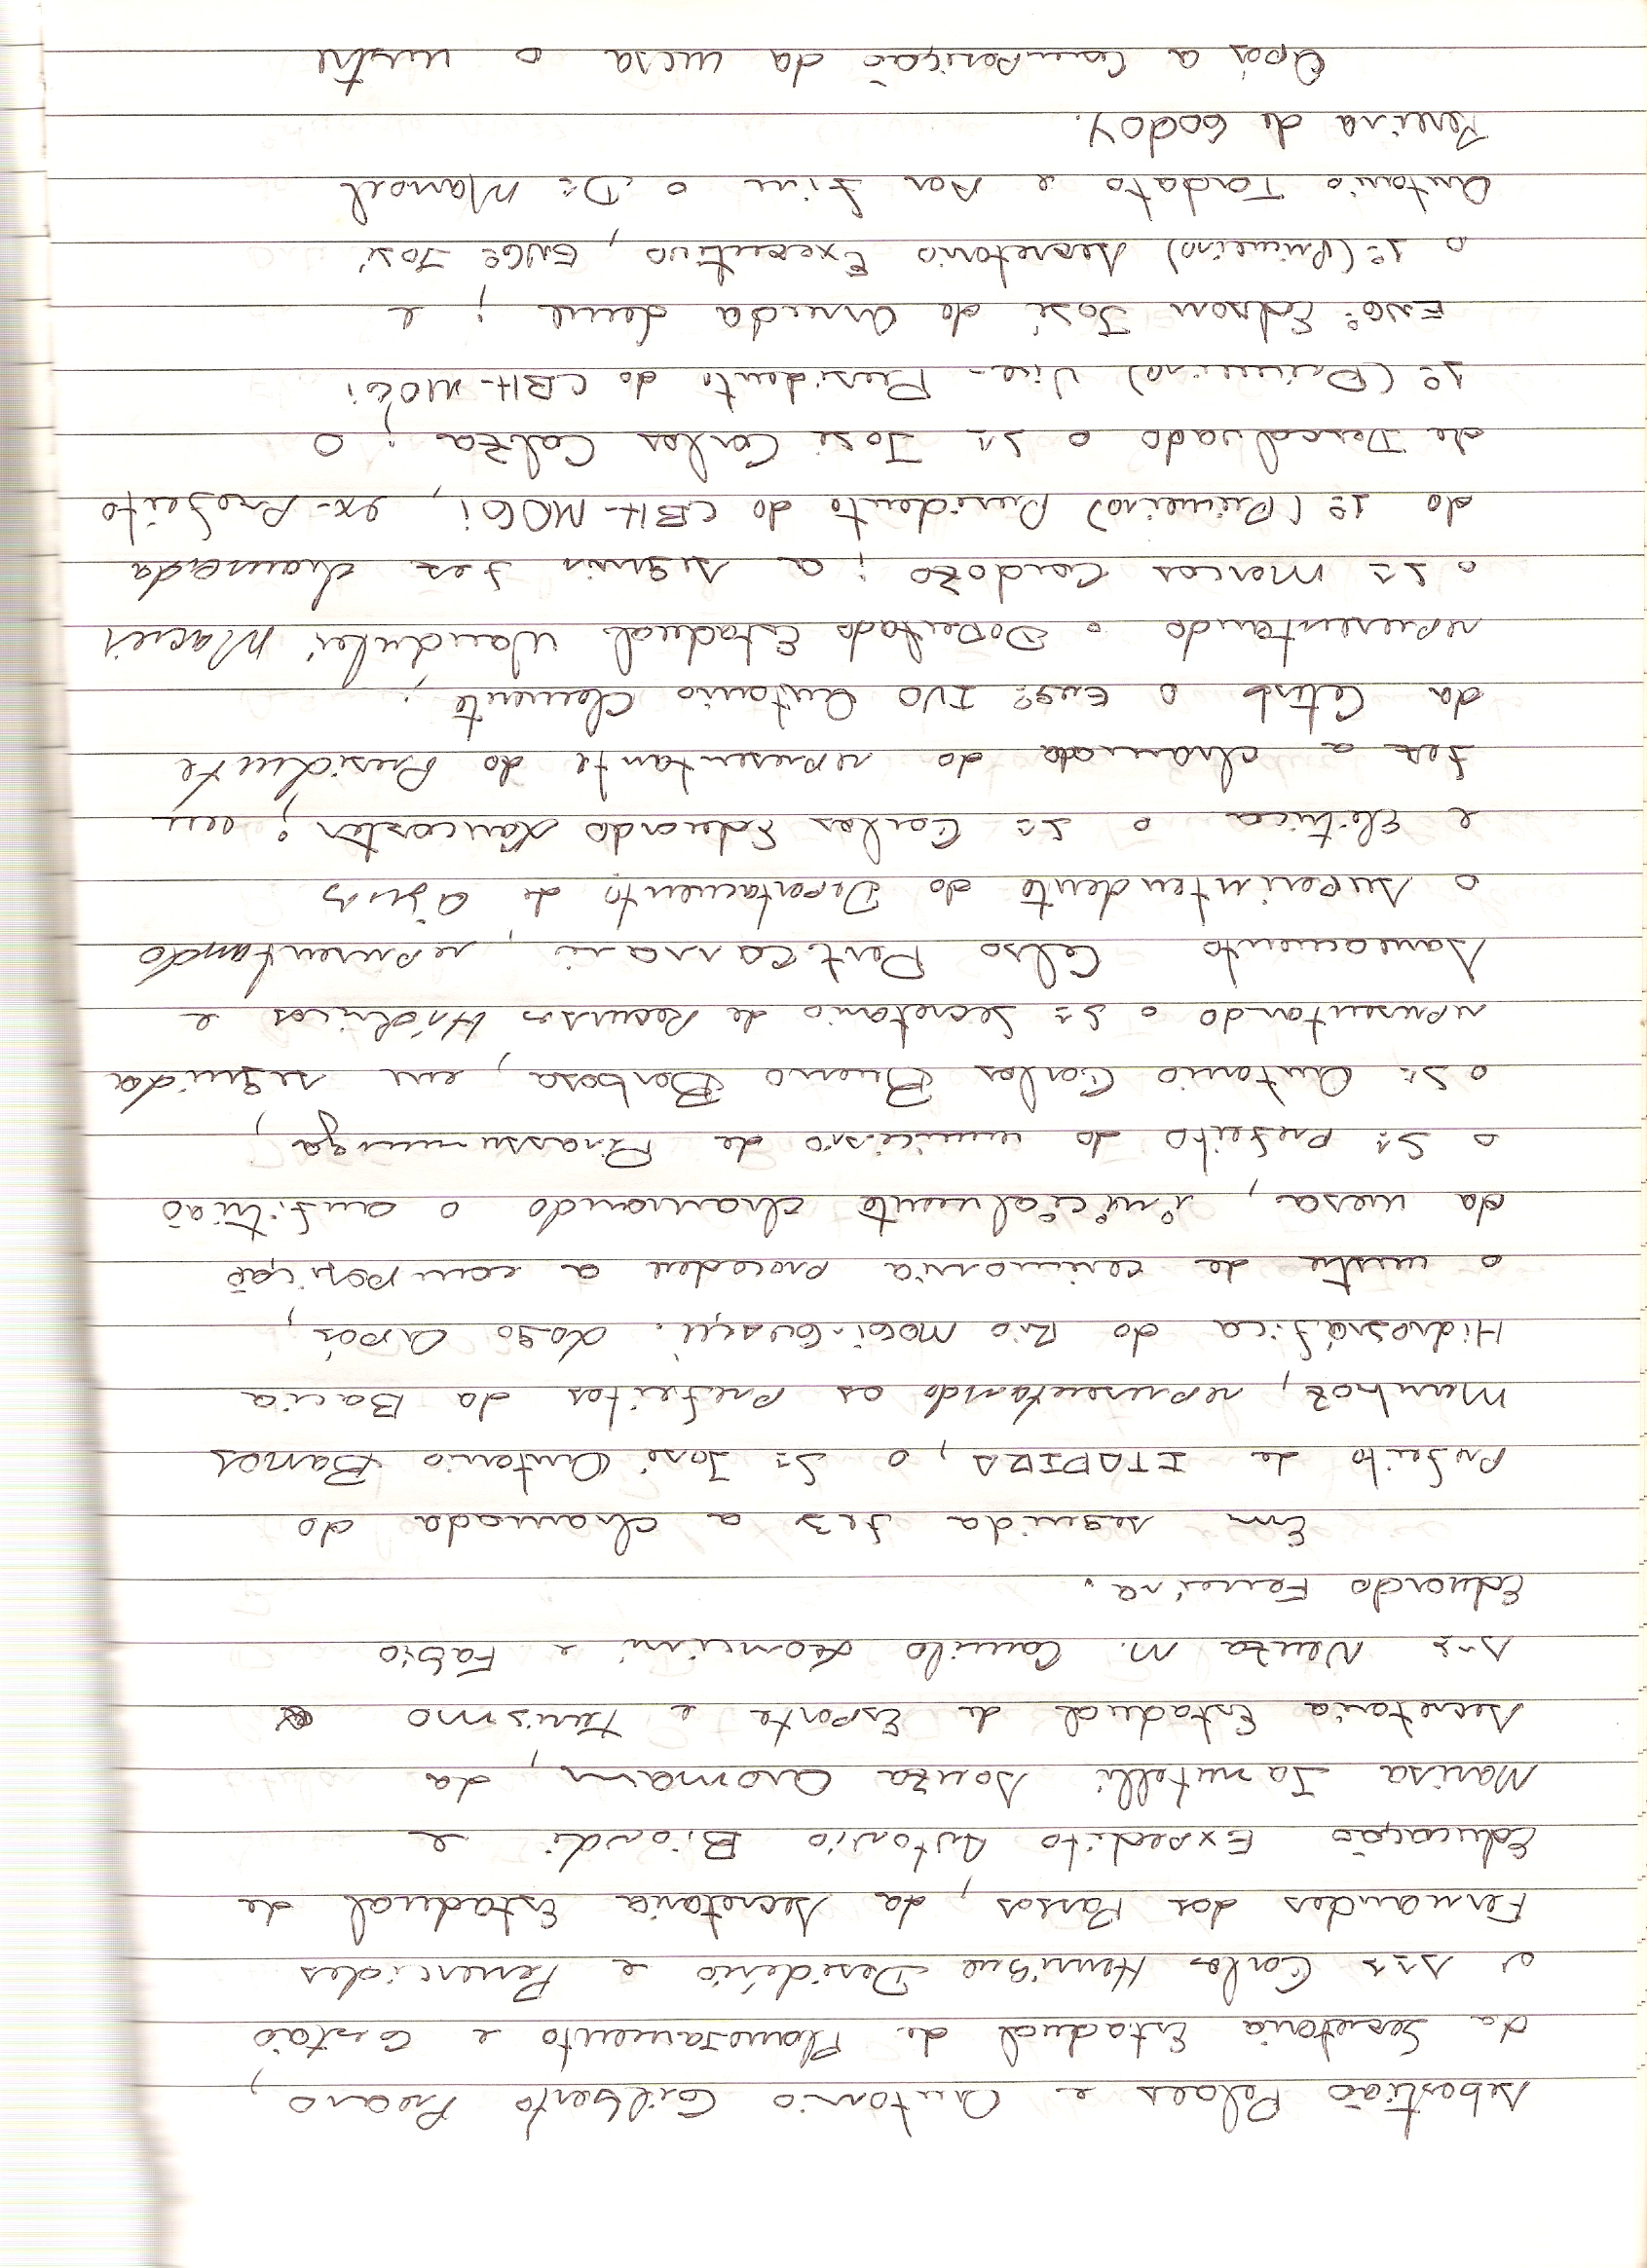 Sebastião Pelaes e Antonio Gilberto Preano,
da Secretaria Estadual de Planejamento e Gestão
os srs Carlos Henrique Desidério e Ferencides
Fernandes dos Passos, da secretaria Estadual de
Educação Expedito Antonio Biondi e
Marisa Janutelli Souza Aromani, da
Secretaria Estadual de Esporte e Turismo
srs Neuza M. Camilo Leoncini e Fabio
Eduardo Ferreira.
Em seguida fez a chamada do
Prefeito de ITAPIRA, o Sr José Antonio Barros
Munhoz, representando os Prefeitos da Bacia
Hidrográfica do Rio MOGI-Guaçu. Logo Após,
o mestre de cerimonia procedeu a composição
da mesa, inicialmente chamando o anfitrião
o Sr Prefeito do município de Pirassununga,
o Sr Antonio Carlos Bueno Barbosa, em seguida
representando o Sr Secretario de Recursos Hídricos e
Saneamento Celso Perticarrari, representando
o superintendente do Departamento de Águas
e Elétrica o Sr Carlos Eduardo ; em
fez a chamada do representante do Presidente
da Cetesb o Engº IVO Antonio Clemente ;
representando o Deputado Estadual Vanderlei Macris
o Sr Marcos Cardozo ; a seguir fez chamada
do 1º (Primeiro) Presidente do CBH-MOGi, ex-Prefeito
de Descalvado o Sr José Carlos Calza ; O
1º (Primeiro) Vice-Presidente do CBH-MOGi
ENGº Edson José de Arruda Leme ; e
o 1º (Primeiro) Secretario Executivo, ENGº José
Antonio Tardato e por fim o Dr Manoel
Pereira de GODOY.
Após a Composição da mesa o mestre